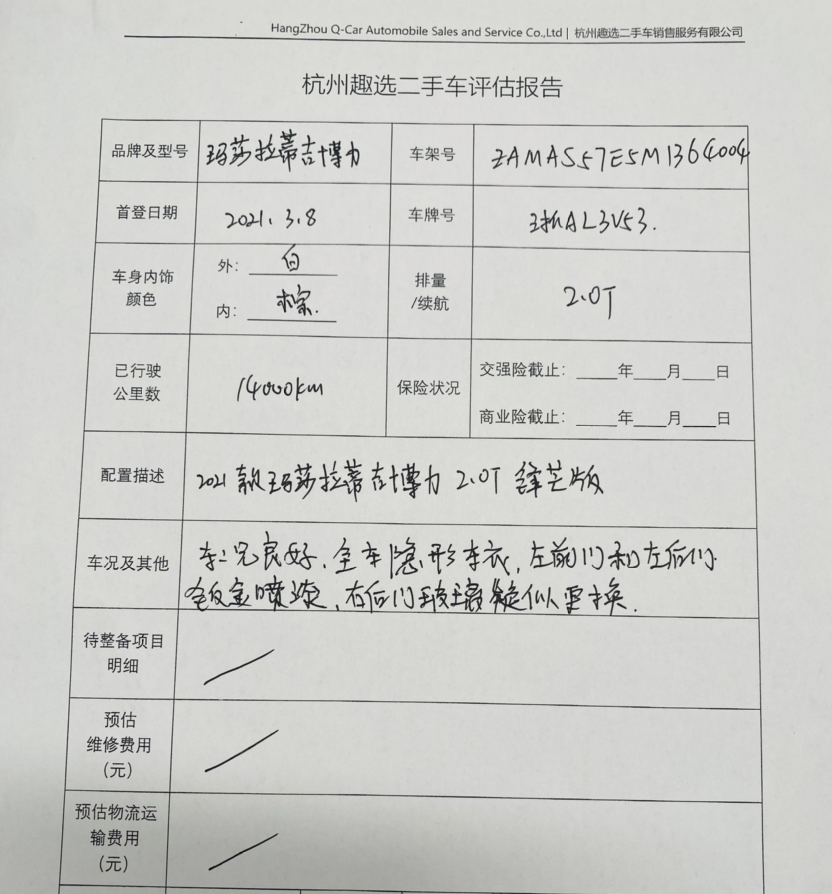 HangZhou Q-Car Automobile Sales and Service Co.,Ltd | 杭州趣选二手车销售服务有限公司
杭州趣选二手车评估报告
品牌及型号 玛莎拉蒂吉博力 车架号 ZAMAS57E5M1364004
首登日期 2021.3.8 车牌号 浙AL3V53.
车身内饰
颜色
外: 白
内: 棕.
排量
/续航
2.0T
已行驶
公里数
14000km
保险状况
交强险截止: 年 月 日
商业险截止: 年 月 日
配置描述 2021款玛莎拉蒂吉博力 2.0T 锋芒版
车况及其他
车况良好,全车隐形车衣,左前门和左后门
钣金喷漆,右后门玻璃疑似更换.
待整备项目
明细
预估
维修费用
(元)
预估物流运
输费用
(元)